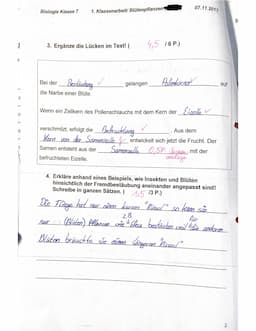 Biologie Klasse 7 1. Klassenarbeit Blütenpflanzen 07.11.2013
3. Ergänze die Lücken im Text! 4,5 (6 P.)
Bei der Bestäubung gelangen Pollenkörner auf
die Narbe einer Blüte.
Wenn ein Zellkern des Pollenschlauchs mit dem Kern der Eizelle
verschmilzt, erfolgt die Befruchtung. Aus dem
Kern von der Samenzelle entwickelt sich jetzt die Frucht. Der
Samen entsteht aus der Samenzelle 0,5P mit der
befruchteten Eizelle.
4. Erkläre anhand eines Beispiels, wie Insekten und Blüten
hinsichtlich der Fremdbestäubung aneinander angepasst sind!
Schreibe in ganzen Sätzen. 1,5 (3 P.)
Die Fliege hat nur einen kurzen "Rüssel" so kann sie
z.B. für
nur (Blüten) Pflanzen wie bestäuben und die anderen
Blüten bräuchte sie einen längeren "Rüssel"
2